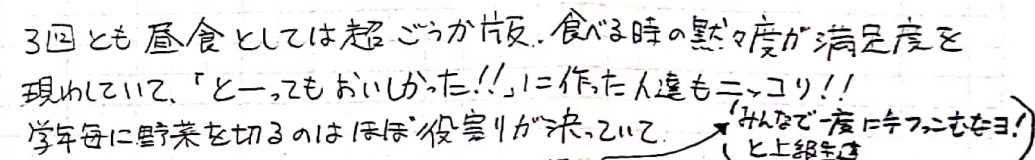 3回とも昼食としては超ごうか版。食べる時の黙々度が満足度を
現わしていて、「とーってもおいしかった!!」に作った人達もニッコリ!!
学年毎に野菜を切るのはほぼ役割りが決っていて
(みんなで一度に手つっこむなヨ!)
(と上級生達